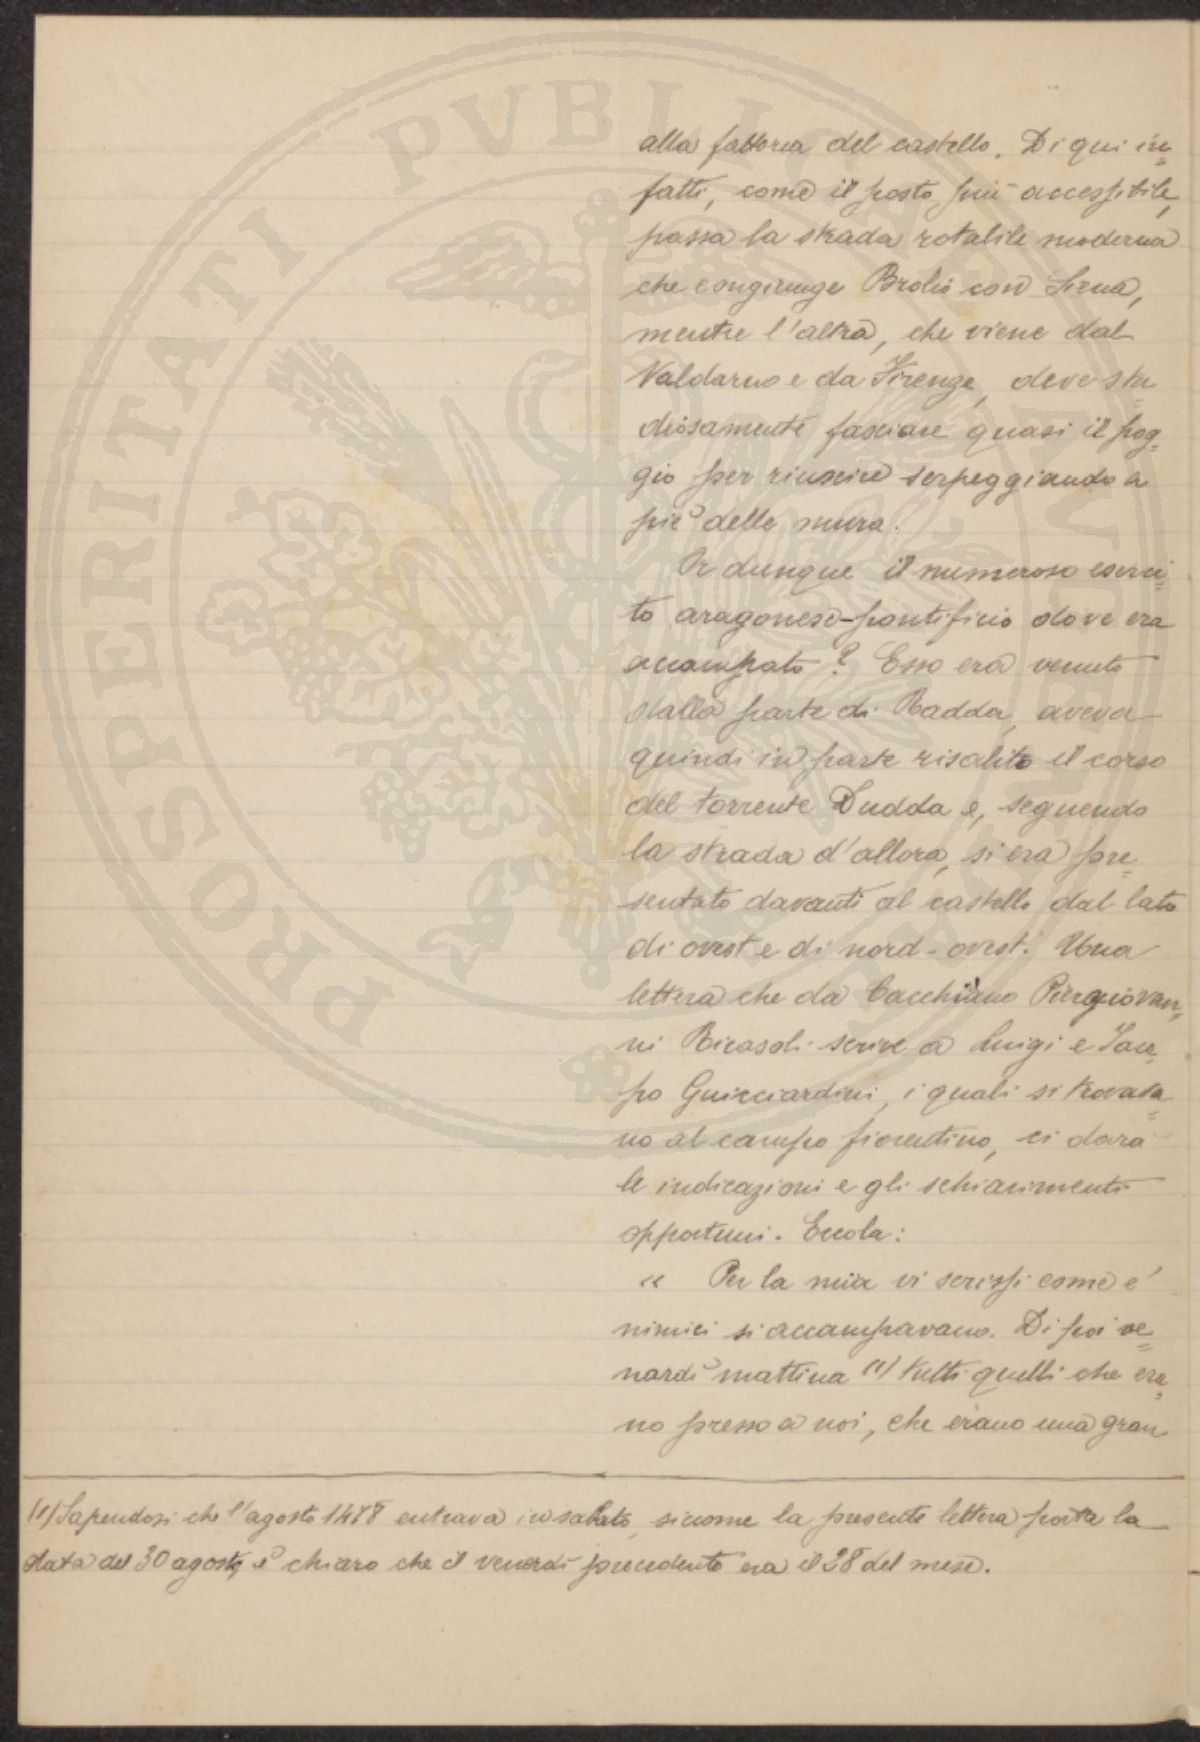 PROSPERITATI PVBLI
alla fattoria del castello. Di qui in=
fatti, come il posto più accessibile,
passa la strada rotabile moderna
che congiunge Brolio con Siena,
mentre l'altra, che viene dal
Valdarno e da Firenze, deve stu=
diosamente fasciare quasi il pog=
gio per riuscire serpeggiando a
piè delle mura.
Or dunque il numeroso eserci=
to aragonese-pontificio dove era
accampato? Esso era venuto
dalla parte di Radda, aveva
quindi in parte risalito il corso
del torrente Dudda e, seguendo
la strada d'allora, si era pre=
sentato davanti al castello dal lato
di ovest e di nord-ovest. Una
lettera che da Cacchiano Piergiovan=
ni Ricasoli scrive a Luigi e Iaco=
po Guicciardini, i quali si trovava=
no al campo fiorentino, ci darà
le indicazioni e gli schiarimenti
opportuni. Eccola:
« Per la mia vi scrissi come e'
nimici si accampavano. Di poi ve=
nardì mattina (1) tutti quelli che era=
no presso a noi, che erano una gran
(1) Sapendosi che l'agosto 1478 entrava in sabato, siccome la presente lettera porta la
data del 30 agosto, è chiaro che il venerdì precedente era il 28 del mese.